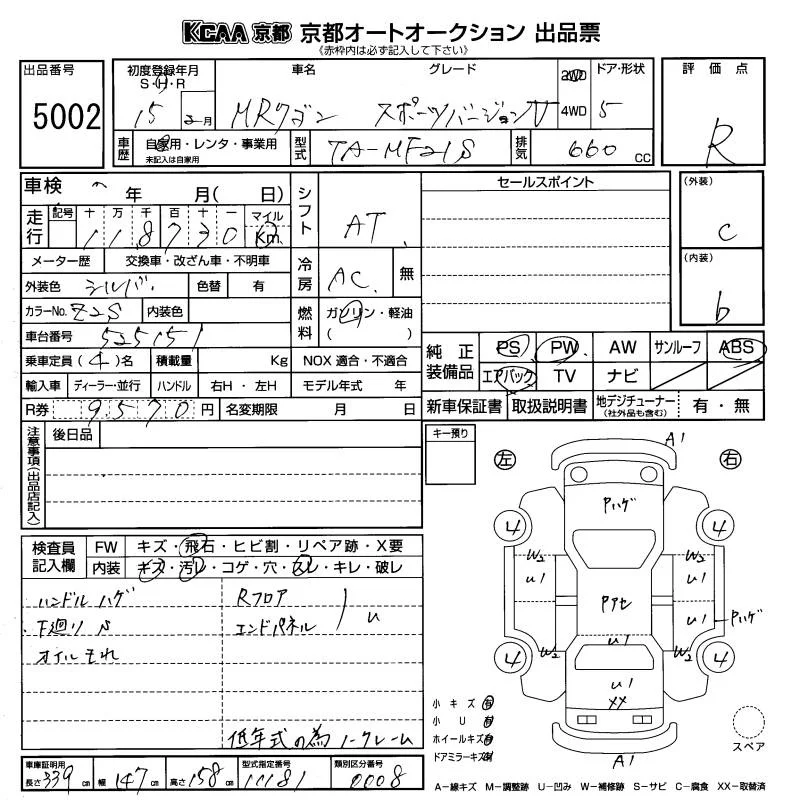 KCAA 京都 京都オートオークション 出品票
《赤枠内は必ず記入して下さい》
出品番号 初度登録年月 車名 グレード 2WD ドア・形状 評価点
S・H・R
5002 15 年 2 月 MRワゴン スポーツバージョンV 4WD 5 R
車歴 自家用・レンタ・事業用 型式 TA-MF21S 排気 660 CC
未記入は自家用
車検 年 月( 日) シフト AT セールスポイント (外装)
走行 記号 十 万 千 百 十 一 マイル
118730 Km C
メーター歴 交換車・改ざん車・不明車 冷房 AC 無 (内装)
外装色 シルバ 色替 有
カラーNo. Z2S 内装色 燃料 ガソリン・軽油 b
車台番号 525151 ( )
乗車定員 (4)名 積載量 Kg NOX 適合・不適合 純正装備品 PS PW AW サンルーフ ABS
輸入車 ディーラー・並行 ハンドル 右H・左H モデル年式 年 エアバック TV ナビ
R券 9570 円 名変期限 月 日 新車保証書 取扱説明書 地デジチューナー (社外品も含む) 有・無
注意事項(出品店記入) 後日品 キー預り
左 右
A1
Pハゲ
4 4
W2 W2
U1 U1
Pアセ
U1 Pハゲ
U1
W2 W2
4 4
U1
XX
A1
検査員記入欄 FW キズ・飛石・ヒビ割・リペア跡・X要
内装 キズ・汚レ・コゲ・穴・スレ・キレ・破レ
ハンドルハゲ Rフロア
下廻りS エンドパネル U
オイルモれ
低年式の為ノークレーム
小キズ 有
小U 有
ホイールキズ 有
ドアミラーキズ 有
スペア
車庫証明用 長さ 339 cm 幅 147 cm 高さ 158 cm 型式指定番号 11181 類別区分番号 0008
A−線キズ M−調整跡 U−凹み W−補修跡 S−サビ C−腐食 XX−取替済